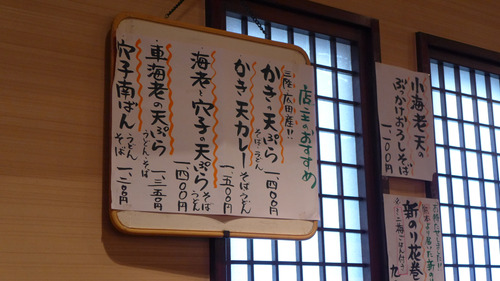 店主のおすすめ
三陸広田産!!
かきの天ぷら
そば・うどん
一、四〇〇円
かき天カレー
そば・うどん
一、五〇〇円
海老と穴子の天ぷら
そば
うどん
一、四〇〇円
車海老の天ぷら
うどん・そば
一、三五〇円
穴子南ばん
うどん
そば
一、二〇〇円
小海老天の
ぶっかけおろしそば
一、〇〇〇円
新のり花巻